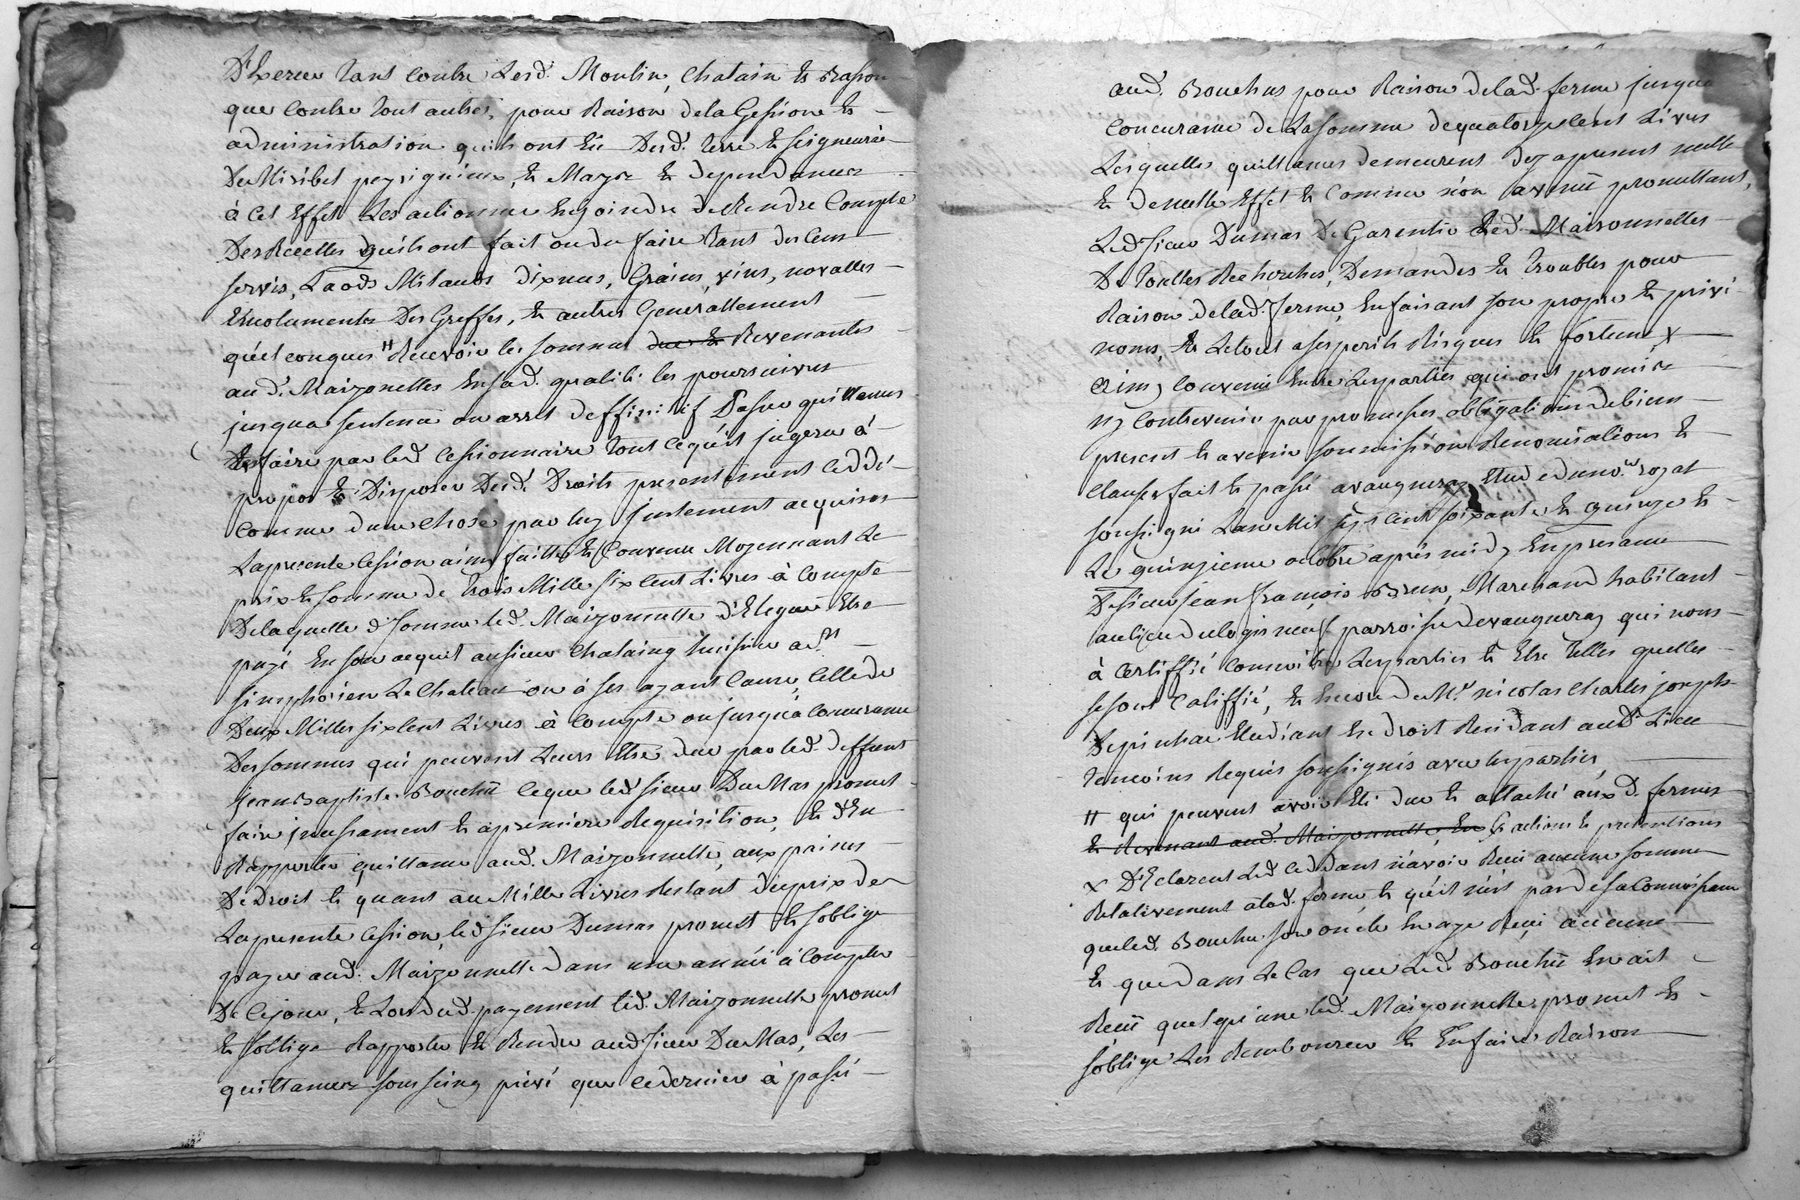 D'Exercer tant contre lesd. Moulin, Chatain et Basson
que contre tout autres, pour Raison de la Gession et
administration quils ont Eü Desd. terre et seigneurie
De Miribel peyrignieux, et Mayze et dependances
à Cet Effet les actionner Enjoindre de Rendre Compte
Des Recettes quils ont fait ou du faire tant des Cens
servis, Laods Milaods dixmes, Grains, vins, novalles
Emoluments Des Greffes, et autres Generallement
quelconques # Recevoir les sommes due et Revenantes
aud. Maizonettes En sad. qualité les poursuivres
jusqua sentence ou arret deffinitif Passer quittances
et faire par led Cessionnaire tout ce quil jugera à
propos et Disposer Desd. Droits presentement Ceddé
Comme d'une Chose par luy justement acquises
La presente Cession ainsy faitte et Convenue Moyennant Le
prix et somme de trois Mille six Cent Livres à Compte
De laquelle d. somme led. Maizonnette d'Elegue Etre
payé En son acquit au sieur Chalaing huissier a St
simphorien Le Chateau ou à ses ayant Cause, Celle de
Deux Milles six Cent Livres à Compte ou jusqu'a Concurance
Des sommes qui peuvent Leurs Etre due par led. deffunt
jean Baptiste Bouchü Ce que led sieur DuMas promet
faire jncessament et a premiere Requisition, et d'En
Rapporter quittance aud. Maizonnette, aux paines
De Droit et quant au Mille Livres Restant du prix de
La presente Cession, led sieur Dumas promet et soblige
payer aud. Maizonnette dans une année à Compter
De Ce jour, et Lors dud. payement led. Maizonnette promet
et soblige Rapporter et Rendre aud sieur DuMas, Les
quittances sous seing privé que Ce dernier à passé
aud. Bouchus pour Raison de lad. ferme jusqua
Concurance de La somme de quatorze Cent Livres
Lesquelles quittances demeurent dez appresent nulle
et de nulle Effet et Comme non avenüe promettant,
Led sieur Dumas De Garentir Led. Maisonnettes
De touttes Recherches, Demandes et troubles pour
Raison de lad. ferme, En faisant son propre et privé
noms, et Le tout a ses perils Risques et fortune x
ainsy Convenu Entre Les parties qui ont promis
ny Contrevenir par promesses obligations de biens
present et avenir soumissions Renonciations et
Clauses fait et passé avaugneray Etude du no.re royal
soussigné L'an Mil sept Cent soixante et quinze et
Le quinzieme octobre après midy En presance
De sieur jean françois Brun, Marchand habitant
au lieu du logis neuf parroisse de vaugneray qui nous
à Certiffié Connoitre Les parties et Etre telles quelles
se sont Califfié, et Encore de Mr. nicolas Charles joseph
Depinhac Etudiant En droit Residant aud. Lieu
temoins Requis soussignés avec les parties
# qui peuvent avoir Eté due et attaché aux d. fermes
et Revenant aud. Maizonnette, En actions et pretentions
x D'Eclarent Led Ceddant n'avoir Reçu aucune somme
Relativement a lad. ferme, et qu'il n'est pas de sa Connoissance
que led. Bouchu son oncle En aye Reçu aucune
et que dans Le Cas que Led. Bouchü En ait
Reçü quelqu'une led. Maizonnette promet et
soblige Les Rembourcer et En faire Raison